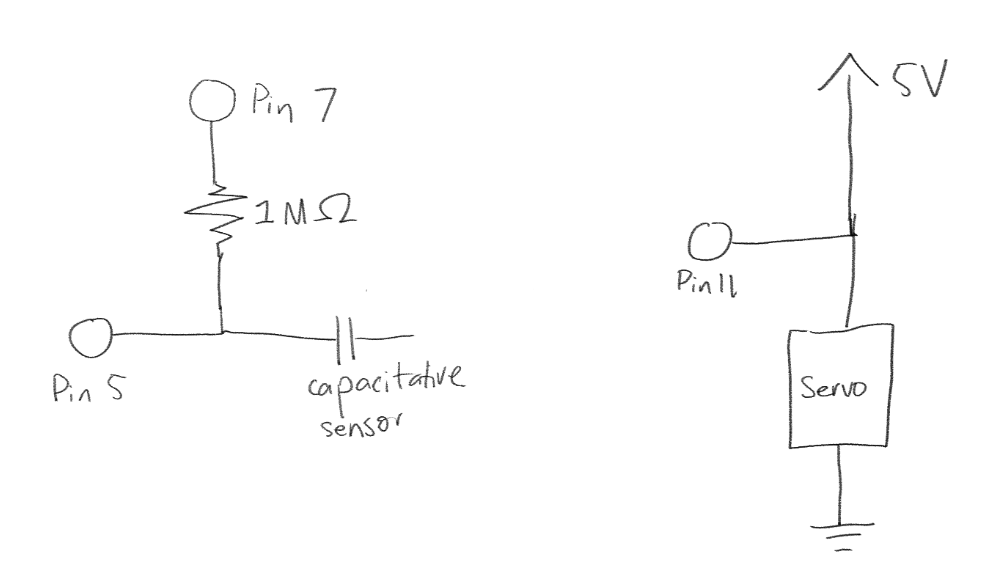 Pin 7
1MΩ
Pin 5
capacitative
sensor
5V
Pin 11
Servo